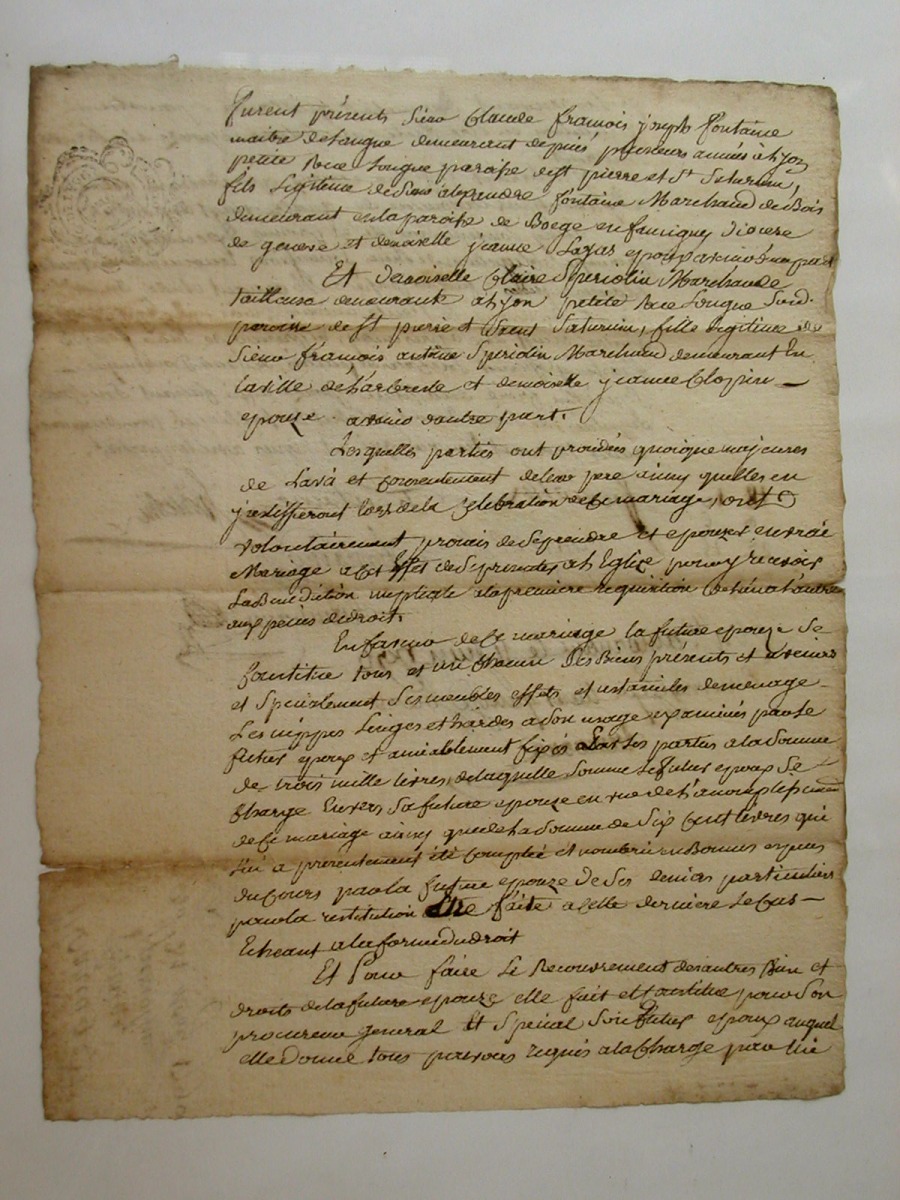 furent présents sieur Claude françois joseph fontaine
maitre de langue demeurant depuis plusieurs années à Lyon
petite Rue Longue paroisse de st pierre et st Saturnin,
fils Legitime de Sieur alexendre fontaine Marchand de Bois
demeurant en la paroisse de Boege en faucigny diocese
de geneve et demoiselle jeanne epouze
Et demoiselle Claire Speriolin Marchande
tailleuse demeurante a Lyon petite Rue Longue Susd.
paroisse de st pierre et Saint Saturnin, fille legitime de
sieur françois antoine Speriolin Marchand demeurant En
la ville de L'arbresle et demoiselle jeanne Clopin
epouze d'autre part.
Lesquelles parties ont procedées quoique majeures
de L'avis et consentement de leur pere ainsy quelles en
justiffieront lors de la Celebration de Ce mariage, ont
volontairement promis de Se prendre et epouzer en vrai
Mariage a Cet Effet de Se presenter a L'Eglise pour y recevoir
La Benediction nuptiale a la premiere requisition de L'un a L'autre
aux peines de droit.
En faveur de Ce mariage la future epouze Se
Constitue tous et un Chacun Ses Biens présents et avenirs
et Specialement Ses meubles effets et ustanciles de menage
Ses nippes Linges et hardes a Son usage examinés par le
futur epoux et amiablement fixés Entre Les parties a la Somme
de trois mille livres, de laquelle Somme Le futur epoux Se
Charge Envers Sa future epouze en vue de L'accomplissement
de Ce mariage ainsy que de La Somme de Six Cent livres qui
Lui a présentement été Comptée et nombrée en Bonnes especes
du Cours par la future epouze de Ses deniers particuliers
pour la restitution Etre faite a Celle derniere Le Cas
Echeant a la forme du droit
Et Pour faire Le Recouvrement des autres Biens et
droits de la future epouze elle fait et Constitue pour Son
procureur general Et Special Son futur epoux auquel
elle donne tous pouvoirs requis a la Charge par lui